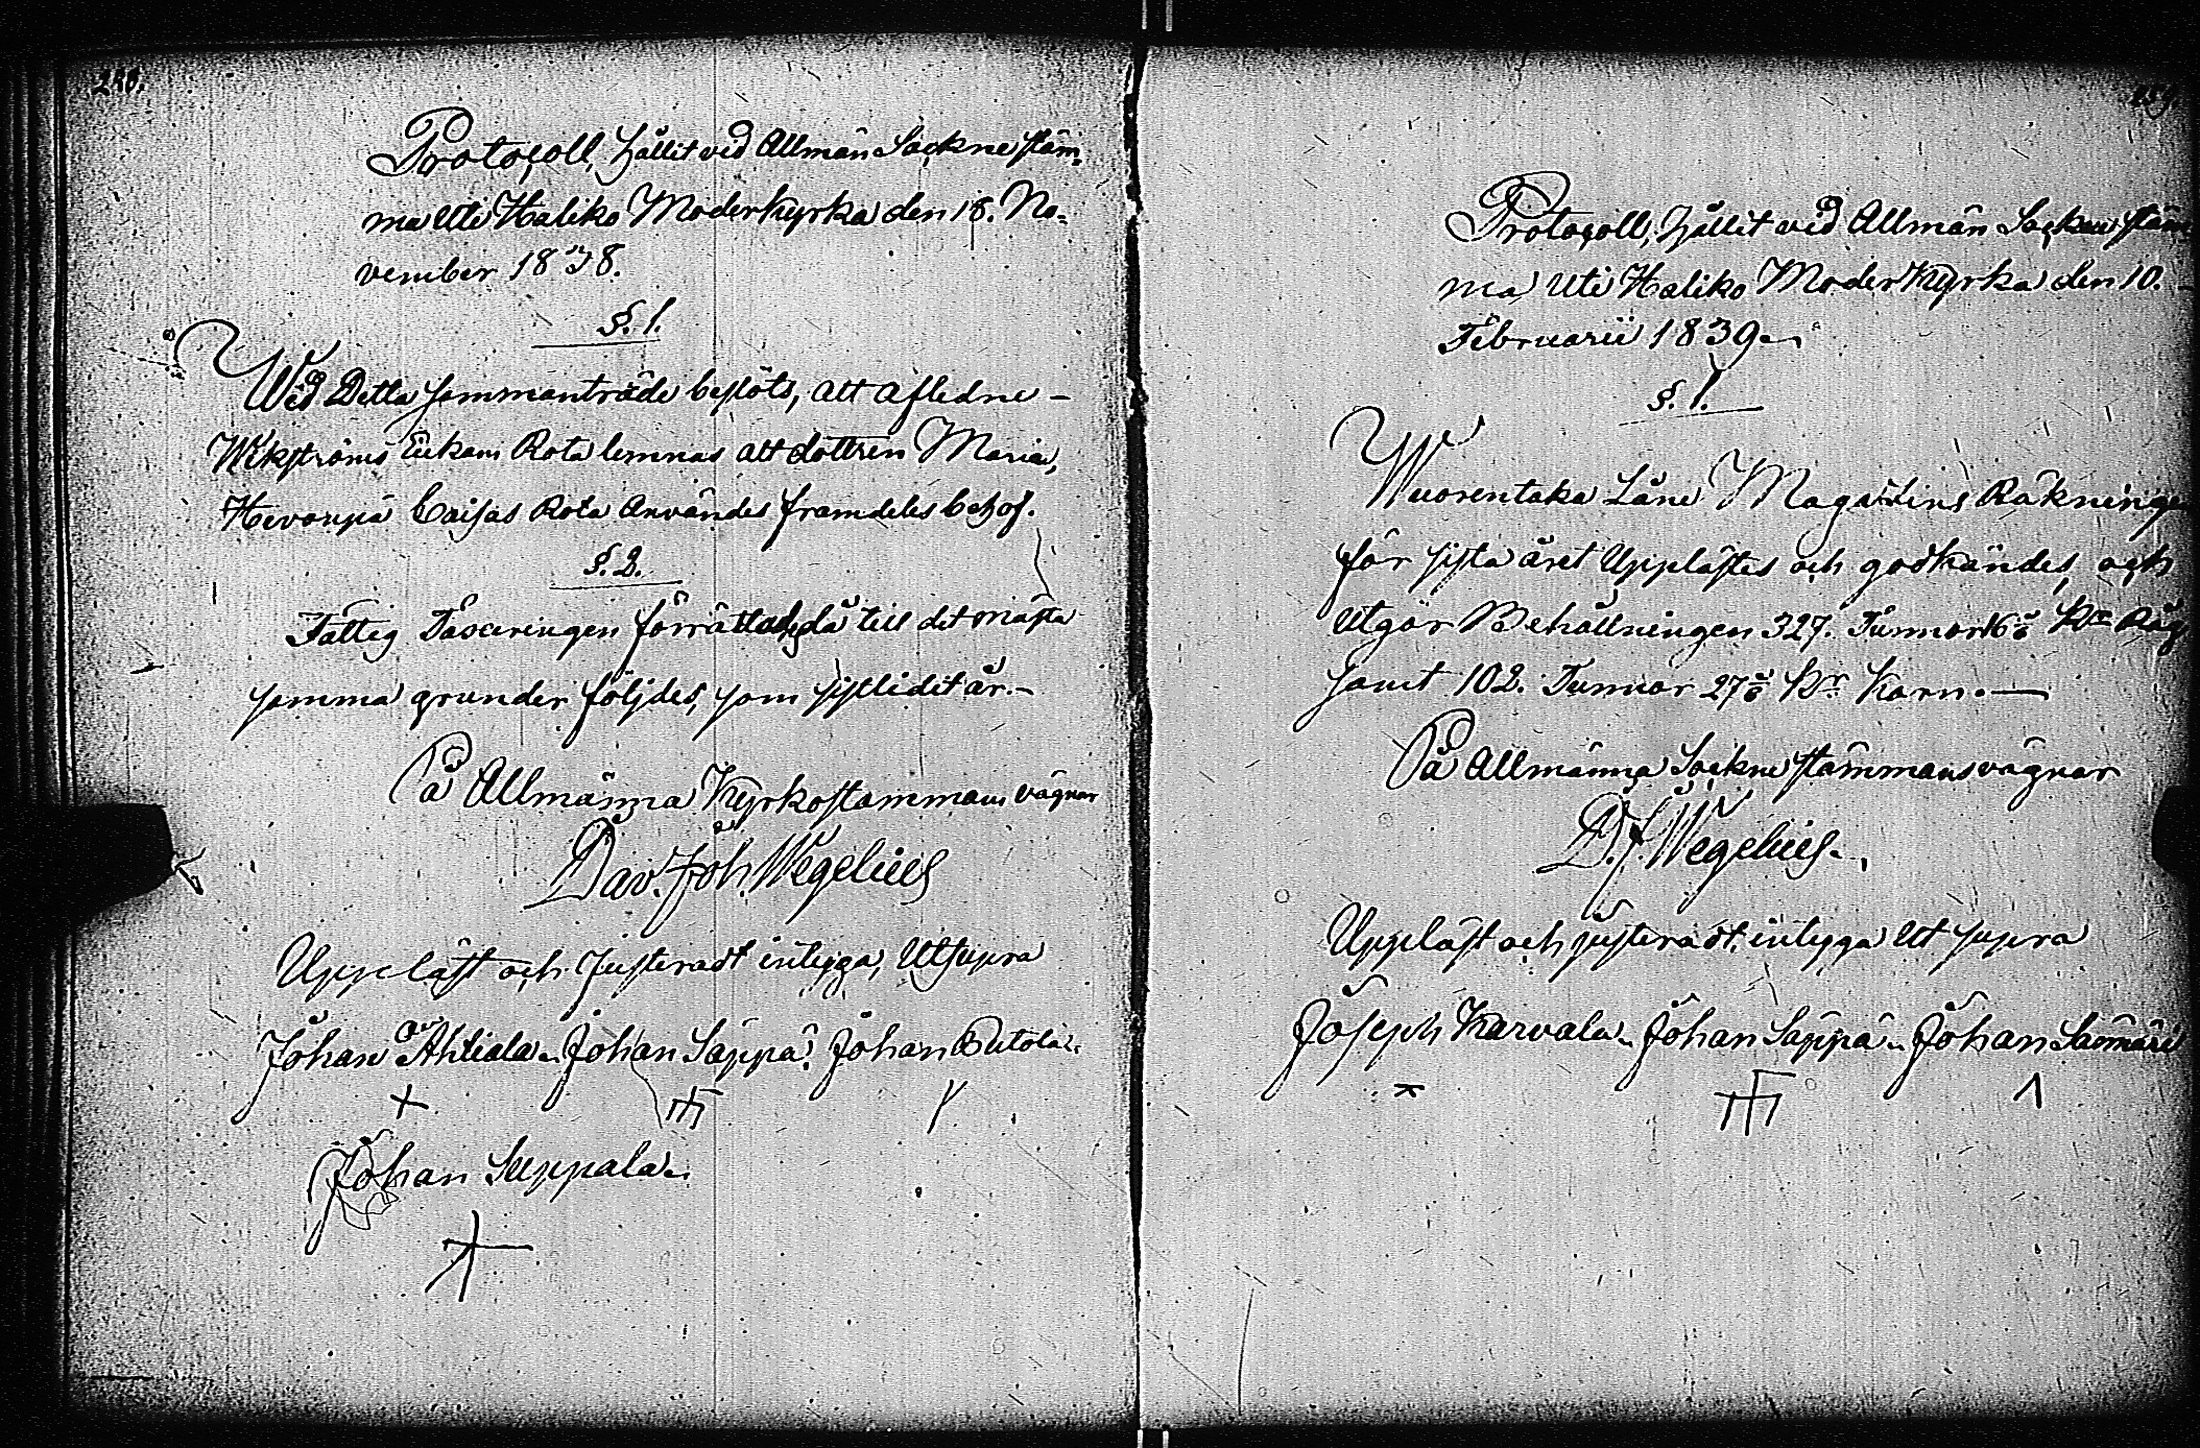 Protocoll, hållit vid Allmän Sockne stäm-
ma uti Haliko Moderkyrka den 18. No-
vember 1838.
§. 1.
Wid Detta sammanträde beslöts, att afledne
Wikströms Enkans Rota lemnas att dottren Maria,
Hevonpä Caisas Rota Användes framdeles behof.
§. 2.
Fattig Taxeringen förrättades då till det mästa
samma grunder följdes, som sistledit år.
På Allmänna Kyrkostämmans vägnar
Dav. Joh. Wegelius
Uppläst och Justeradt intyga, Ut supra
Johan Ahtiala. Johan Säppä. Johan
Johan Suppala.
Protocoll, hållit vid Allmän Socken stäm
ma uti Haliko Moderkyrka den 10.
Februarii 1839.
§. 1.
Wuorentaka Låne Magazins Räkninge
för sista året Upplästes och godkändes, och
utgör Behållningen 327. Tunnor 16 Kr Råg
samt 102. Tunnor 27 Kr Korn.
På Allmänna Sockne stämmans vägnar
D. J. Wegelius.
Uppläst och justeradt, intyga Ut supra
Joseph Karvala. Johan Säppä. Johan